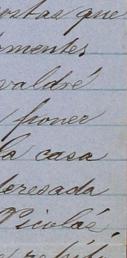 ontas que
mentes
valdré
ponee
la casa
deresada
Nicolás